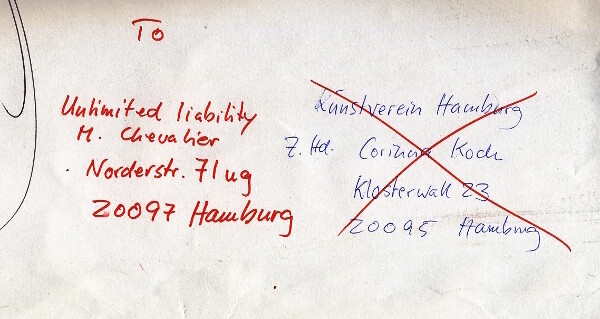 To
Unlimited liability
M. Chevalier
Norderstr. 71 ug
20097 Hamburg
Kunstverein Hamburg
Z. Hd. Corinna Koch
Klosterwall 23
20095 Hamburg